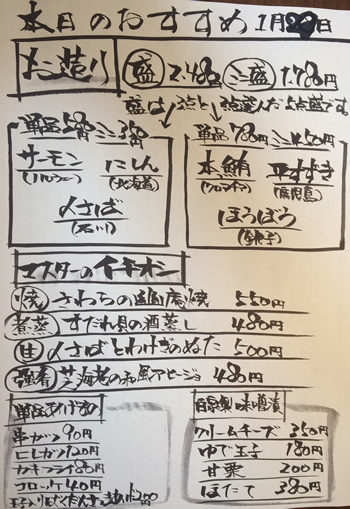 本日のおすすめ 1月29日
お造り
盛 2.480円 ミニ盛 1.780円
単品580円 ミニ350円
サーモン
(ノルウェー)
にしん
(北海道)
〆さば
(石川)
単品780円 ミニ450円
本鮪
(クロアチア)
平すずき
(鹿児島)
ほうぼう
マスターのイチオシ
焼 さわらの幽庵焼 550円
煮蒸 すだれ貝の酒蒸し 480円
〆さばとわけぎのぬた 500円
強肴 芝海老の和風アヒージョ 480円
単品あげもの
串カツ 90円
ヒレカツ 120円
カキフライ 80円
コロッケ 40円
自家製味噌漬
クリームチーズ 350円
ゆで玉子 180円
甘栗 200円
ほたて 380円